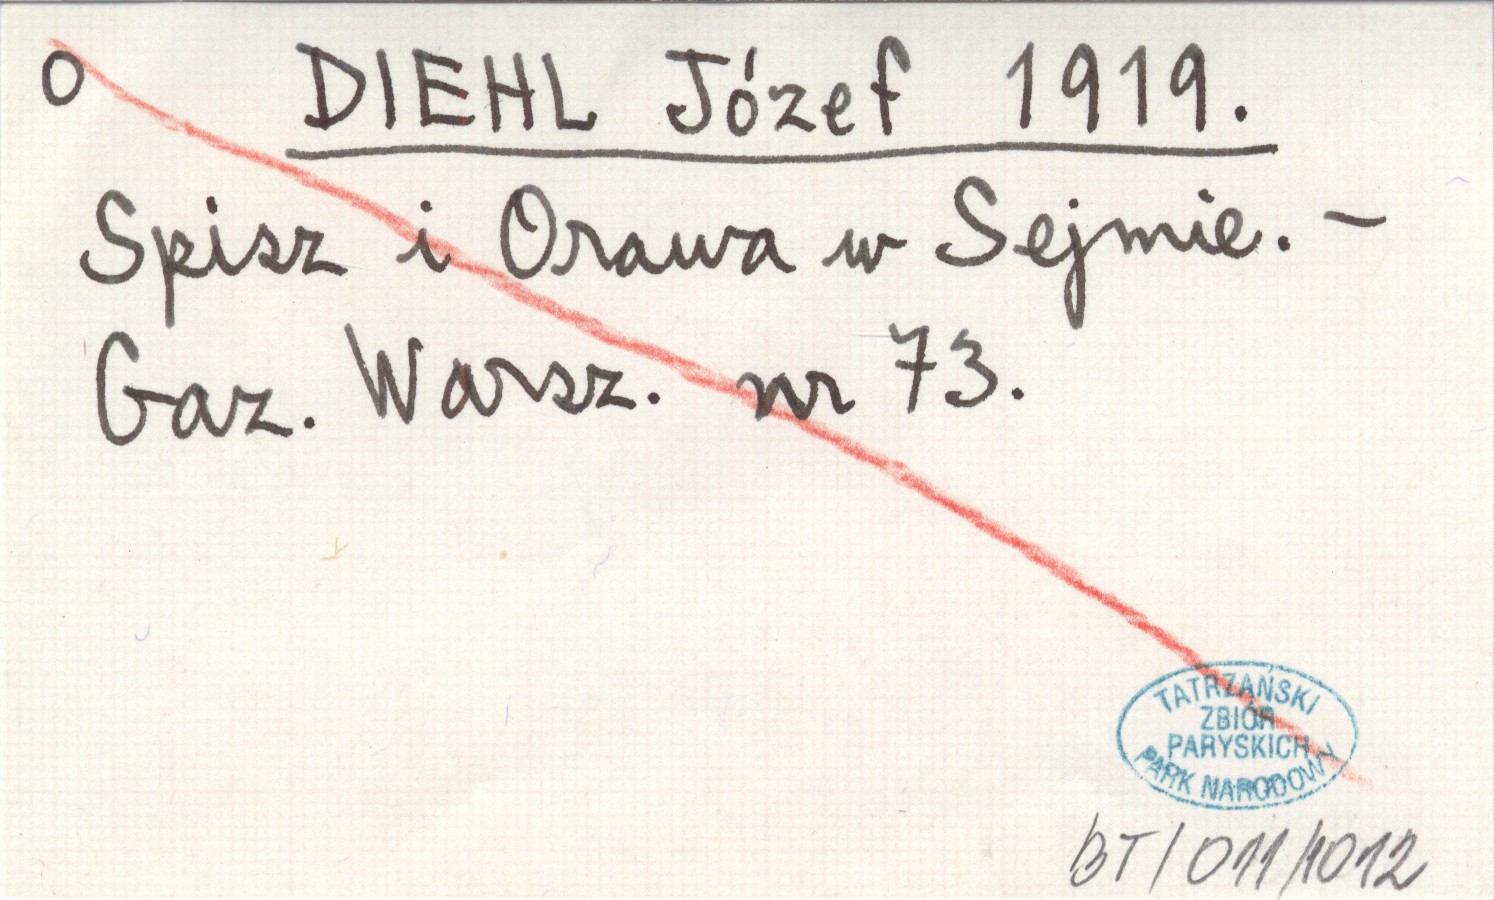 O DIEHL Józef 1919.
Spisz i Orawa w Sejmie. –
Gaz. Warsz. nr 73.
TATRZAŃSKI
ZBIÓR
PARYSKICH
PARK NARODOWY
BT/011/1012